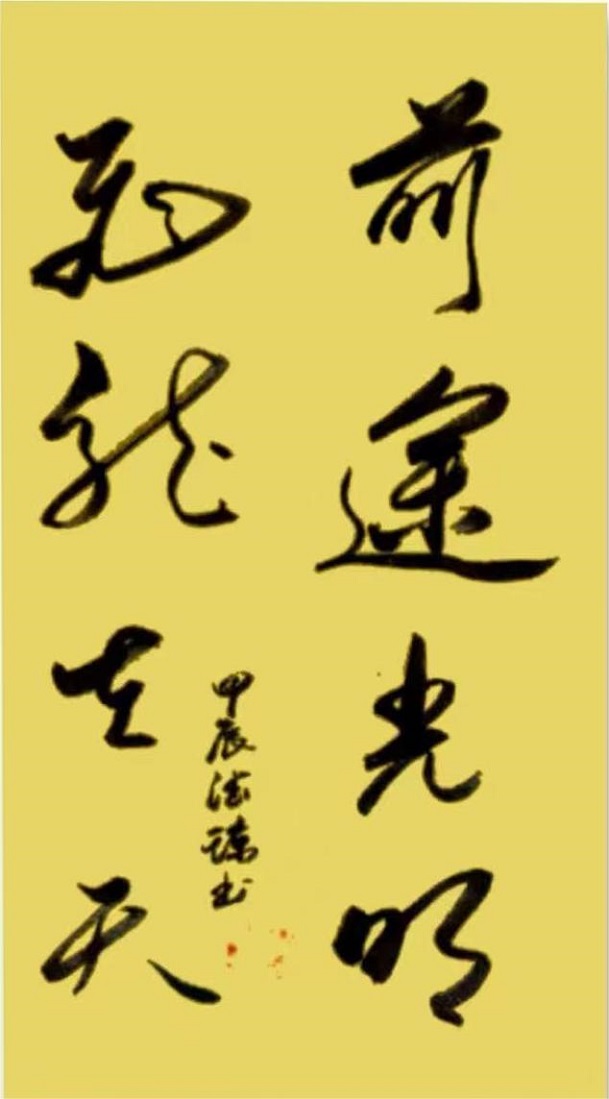 前途光明
飞龙在天
甲辰 书